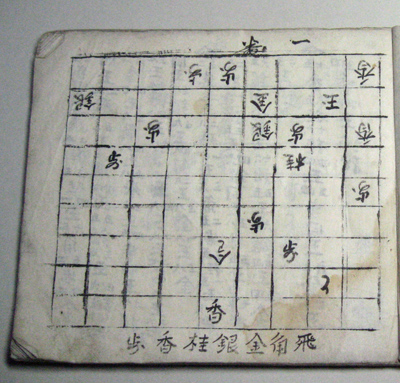 一
香 歩 歩
王 金 銀
香 歩 銀 歩
桂 歩
歩
歩
歩
香
飛角金銀桂香歩